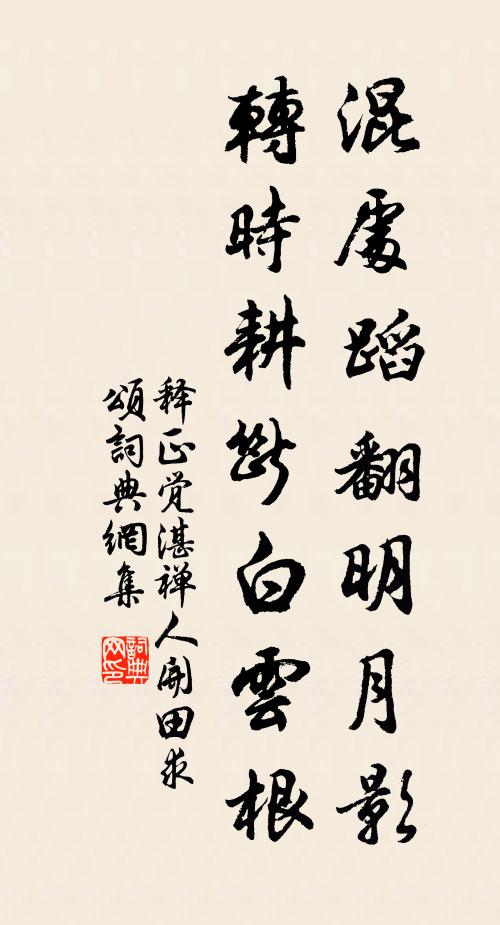 混處蹈翻明月影
轉時耕斷白雲根
释正觉湛禅人開田求
頌詞典網集
詞典
网印